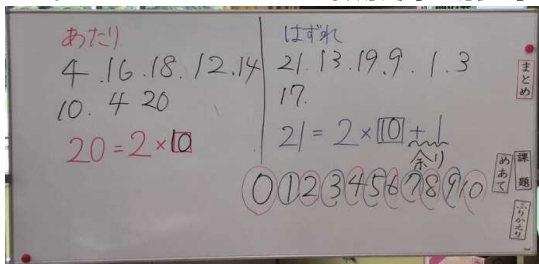 あたり
4 . 16 . 18 . 12 . 14
10 . 4 20
20 = 2 × 10
はずれ
21 . 13 . 19 . 9 . 1 . 3
17 .
21 = 2 × 10 + 1
余り
0 1 2 3 4 5 6 7 8 9 10
まとめ
課題
めあて
ふりかえり